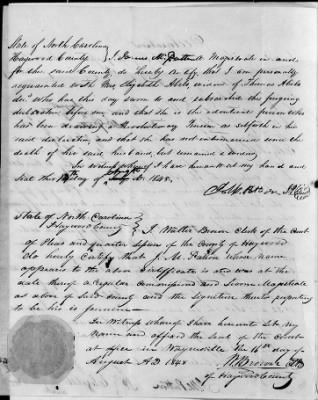 State of North Carolina
Haywood County I James M. Patton a Magistrate in and
for the said County do hereby certify that I am personally
acquainted with Mrs Elizabeth widow of Thomas
Senr. who has this day sworn to and subscribed this foregoing
declaration before me and that she is the identical person who
has been drawing a Revolutionary Pension as set forth in her
said declaration and that she has not intermarried since
the death of her said husband, but remained a widow
In witness whereof I have hereunto set my hand and
Seal this day of 1848.
J. M. Patton
State of North Carolina
Haywood County I Brown Clerk of the Court
of Pleas and quarter Session of the County of Haywood
do hereby Certify that J. M. Patton whose name
appears to the above Certificate is and was at the
date thereof a Regular Commissioned and Sworn Magistrate
as above of said county and the signature thereto purporting
to be his is genuine
In Witness whereof I have hereunto set my
Name and affixed the Seal of the Court
at office in Waynesville the 16th day of
August A.D 1848
Brown Clk
of Haywood County